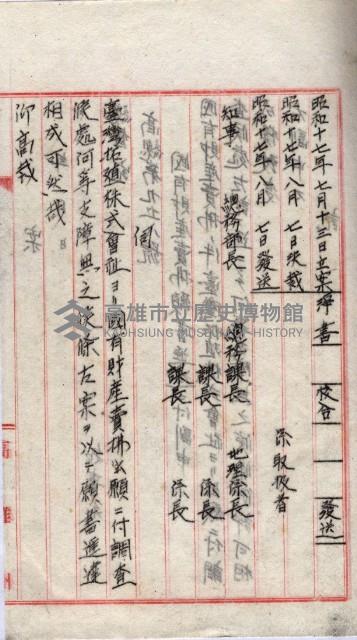 昭和十七年七月十三日立案 淨書 校合 發送
昭和十七年八月 七日決裁
昭和十七年八月 七日發送 係取扱者
知事 總務部長 總務課長 地理係長
課長 係長
課長 係長
伺
臺灣拓殖株式會社ヨリ國有財產賣拂出願ニ付調查
候處何等支障無之候條左案ヲ以テ願書進達
相成可然哉
仰高裁
高雄市立歷史博物館
KAOHSIUNG MUSEUM OF HISTORY
高雄州